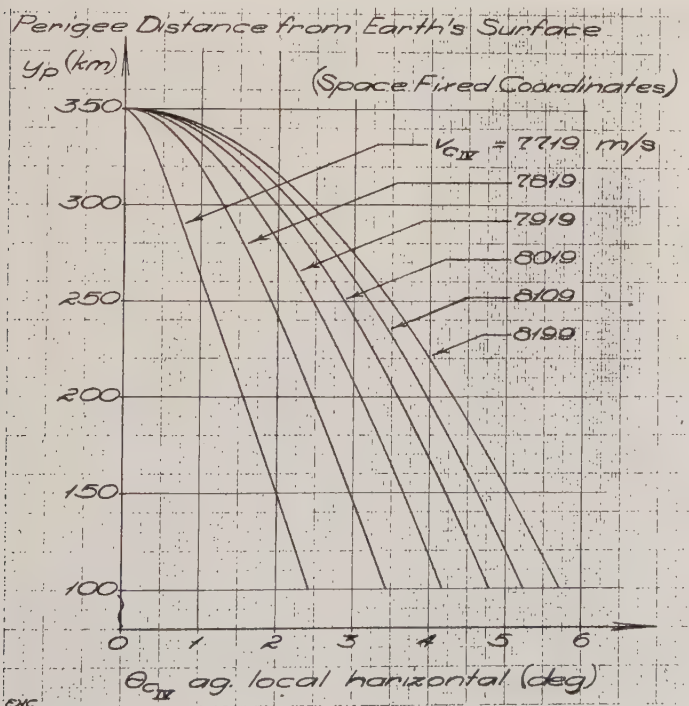 Perigee Distance from Earth's Surface
yp (km)
(Space Fixed Coordinates)
350
300
250
200
150
100
vCIV = 7719 m/s
7819
7919
8019
8109
8199
0 1 2 3 4 5 6
θCIV ag. local horizontal (deg)